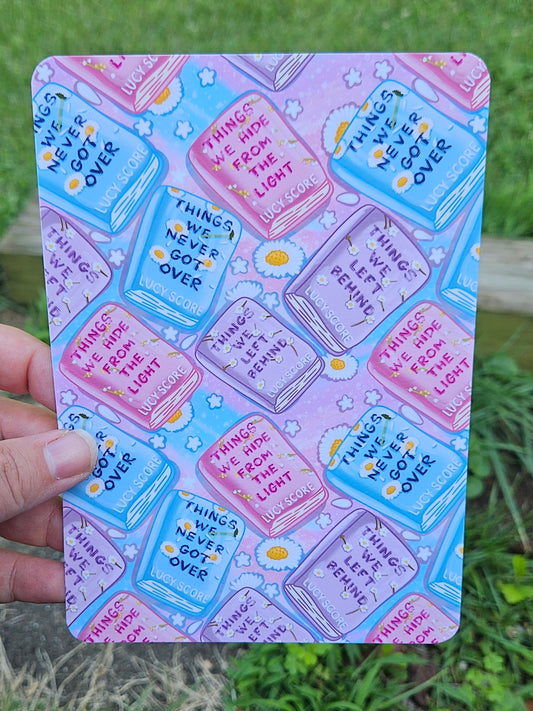 LUCY SCORE
THINGS
WE
NEVER
GOT
OVER
LUCY SCORE
THINGS
WE HIDE
FROM
THE
LIGHT
LUCY SCORE
THINGS
WE
NEVER
GOT
OVER
LUCY SCORE
LUCY SCORE
THINGS
WE
NEVER
GOT
OVER
LUCY SCORE
THINGS
WE
LEFT
BEHIND
LUCY SCORE
THINGS
WE
LEFT
THINGS
WE HIDE
FROM
THE
LIGHT
LUCY SCORE
THINGS
WE
LEFT
BEHIND
LUCY SCORE
THINGS
WE HIDE
FROM
THE
LIGHT
LUCY SCORE
OVER
LUCY SCORE
THINGS
WE HIDE
FROM
THE
LIGHT
LUCY SCORE
THINGS
WE
NEVER
GOT
OVER
LUCY SCORE
THINGS
WE
NEVER
GOT
OVER
LUCY SCORE
THINGS
WE
LEFT
THINGS
WE
LEFT
BEHIND
LUCY SCORE
THINGS
WE HIDE
FROM
THINGS
WE
LEFT
THINGS
WE HIDE